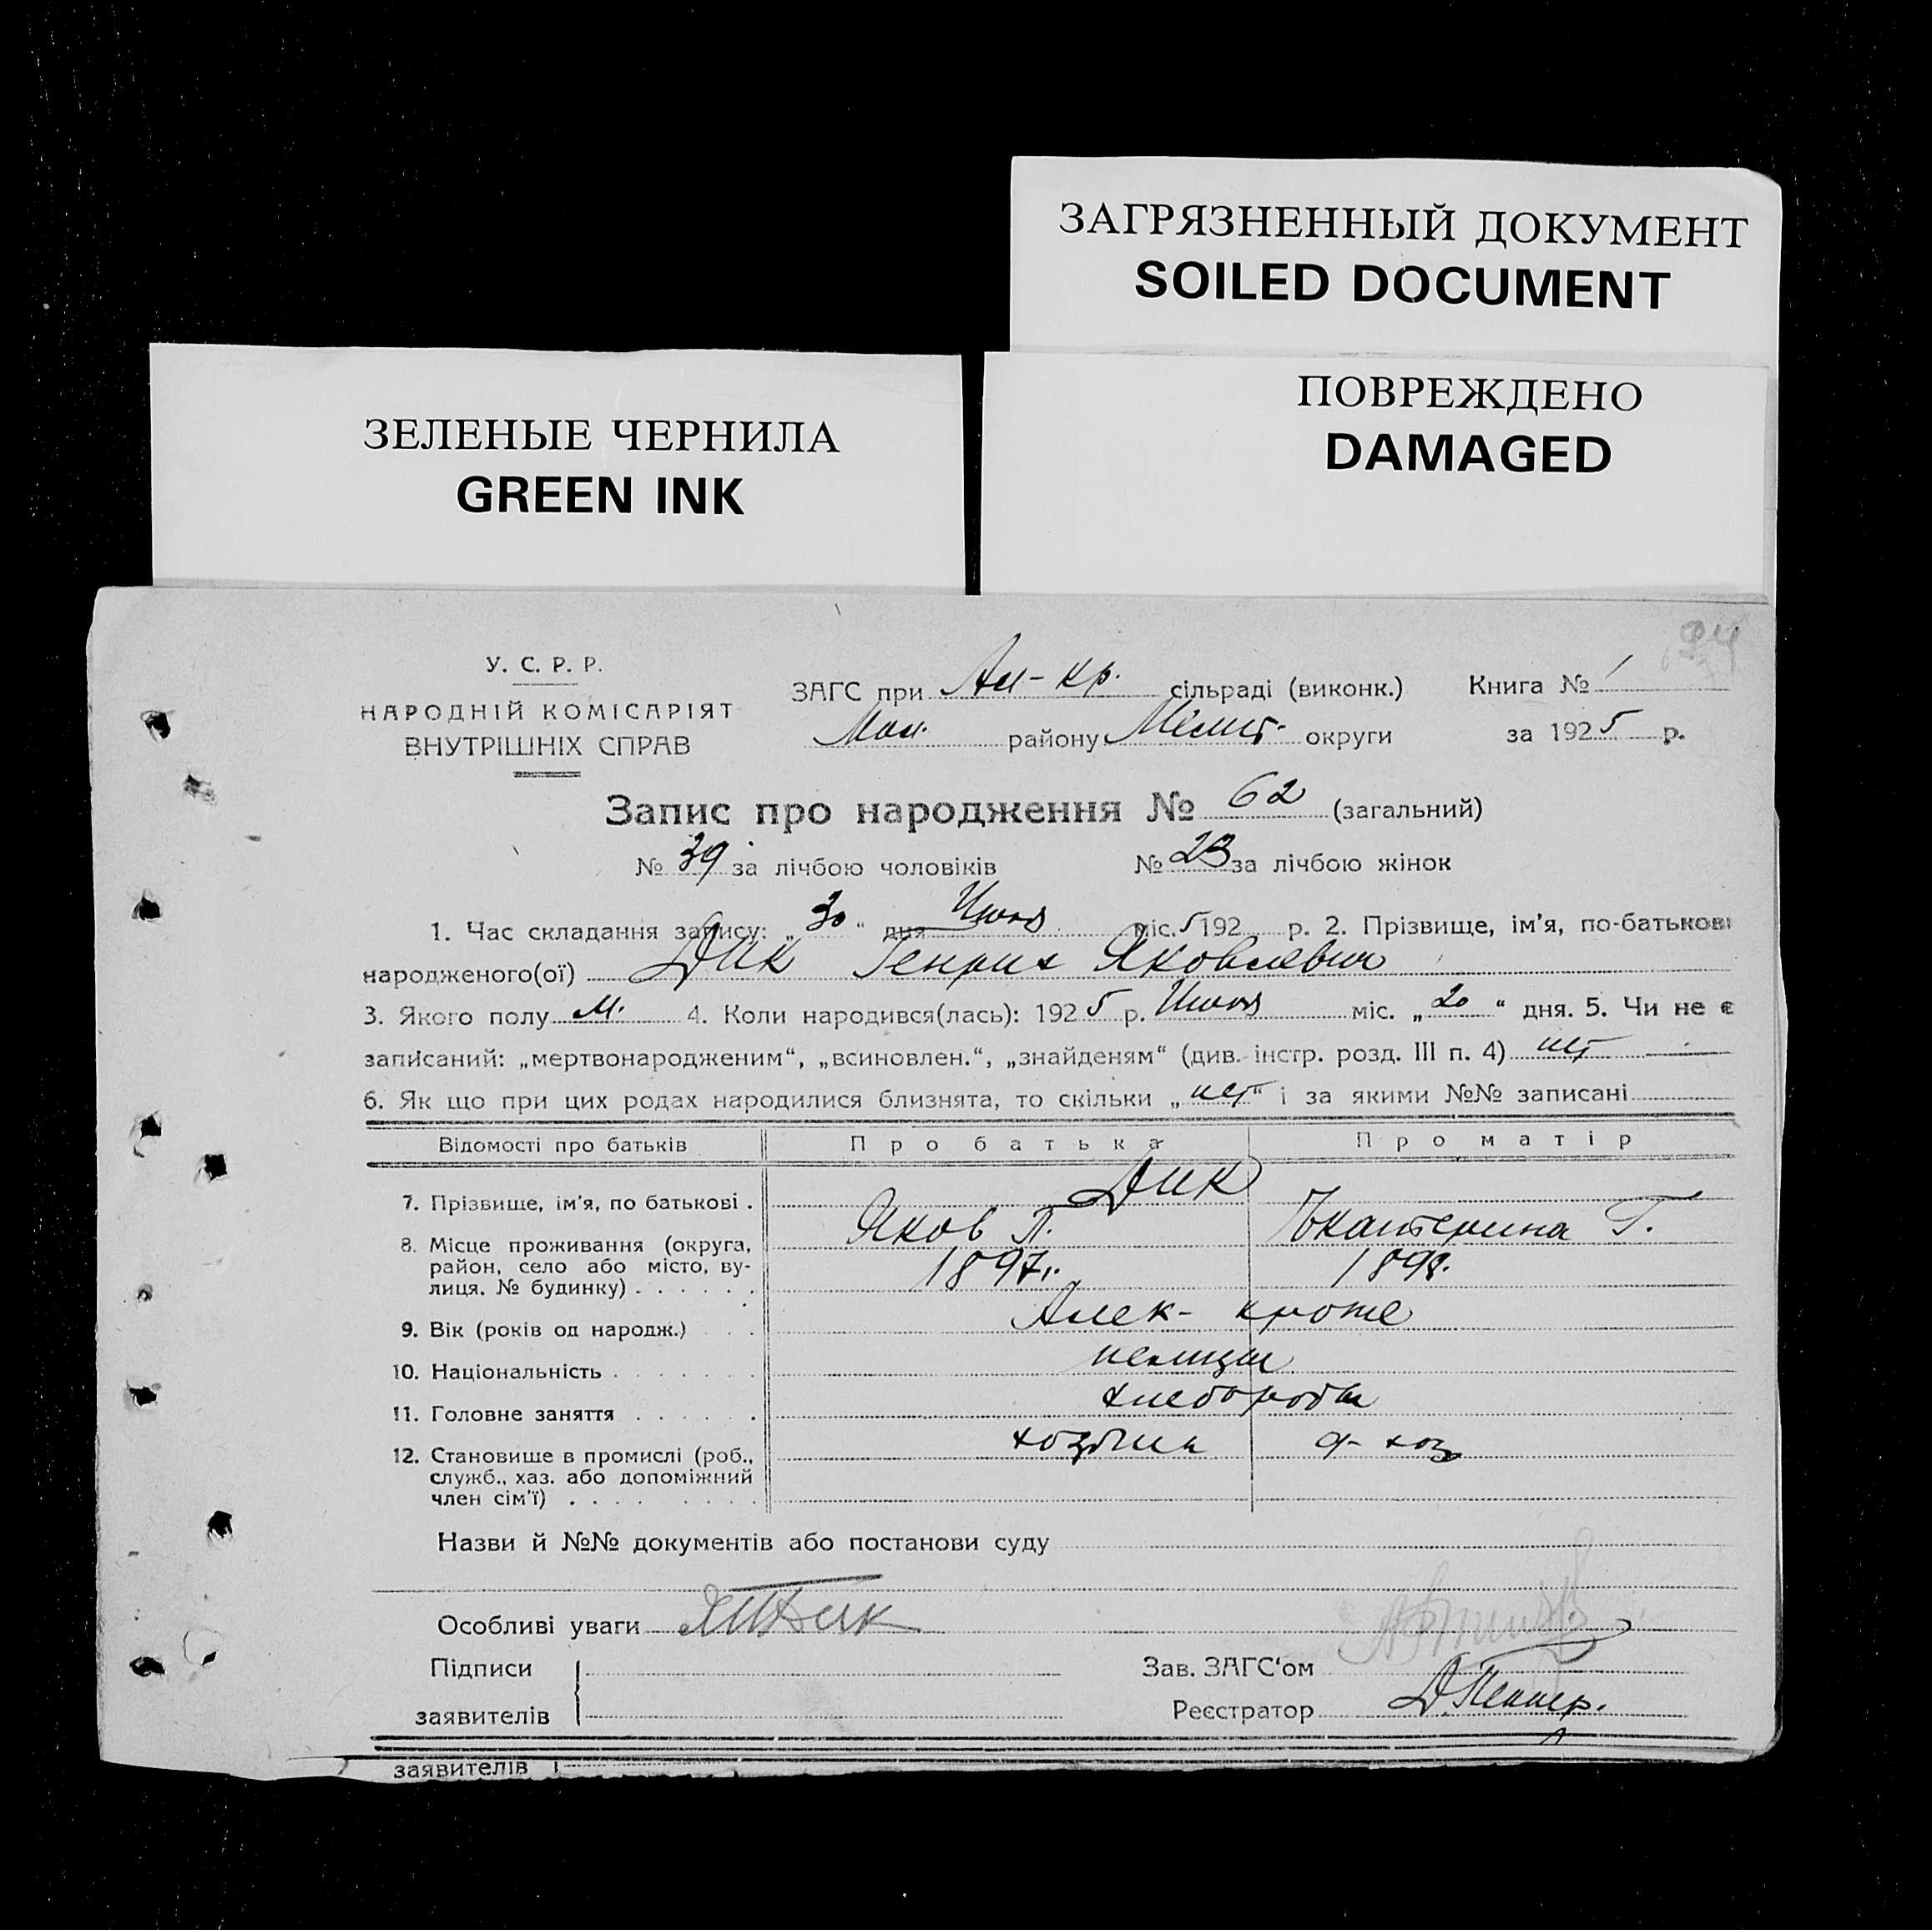 ЗАГРЯЗНЕННЫЙ ДОКУМЕНТ
SOILED DOCUMENT
ЗЕЛЕНЫЕ ЧЕРНИЛА
GREEN INK
ПОВРЕЖДЕНО
DAMAGED
У. С. Р. Р.
НАРОДНІЙ КОМІСАРІЯТ
ВНУТРІШНІХ СПРАВ
ЗАГС при Ал-кр. сільраді (виконк.) Книга № 1
Мол. району Мелит. округи за 1925 р.
Запис про народження № 62 (загальний)
№ 39 за лічбою чоловіків № 23 за лічбою жінок
1. Час складання запису: „30“ дня міс. 5 192 р. 2. Прізвище, ім'я, по-батькові
народженого(ої) Дик Генрих Яковлевич
3. Якого полу м. 4. Коли народився(лась): 1925 р. міс. „20“ дня. 5. Чи не є
записаний: „мертвонародженим“, „всиновлен.“, „знайденям“ (див. інстр. розд. III п. 4) нет
6. Як що при цих родах народилися близнята, то скільки „нет“ і за якими №№ записані
Відомості про батьків Про батька Про матір
7. Прізвище, ім'я, по батькові . Дик
Яков П. Екатерина Г.
8. Місце проживання (округа,
район, село або місто, ву-
лиця. № будинку) . . . . . . 1897г. 1898.
9. Вік (років од народж.) . . . Алек- кроне
10. Національність . . . . . . . немцы
11. Головне заняття . . . . . . хлеборобы
12. Становище в промислі (роб., хозяин д- хоз
служб., хаз. або допоміжний
член сім'ї) . . . . . . . .
Назви й №№ документів або постанови суду
Особливі уваги Дик
Підписи
заявителів
Зав. ЗАГС'ом
Реєстратор Д. Пеннер.
заявителів